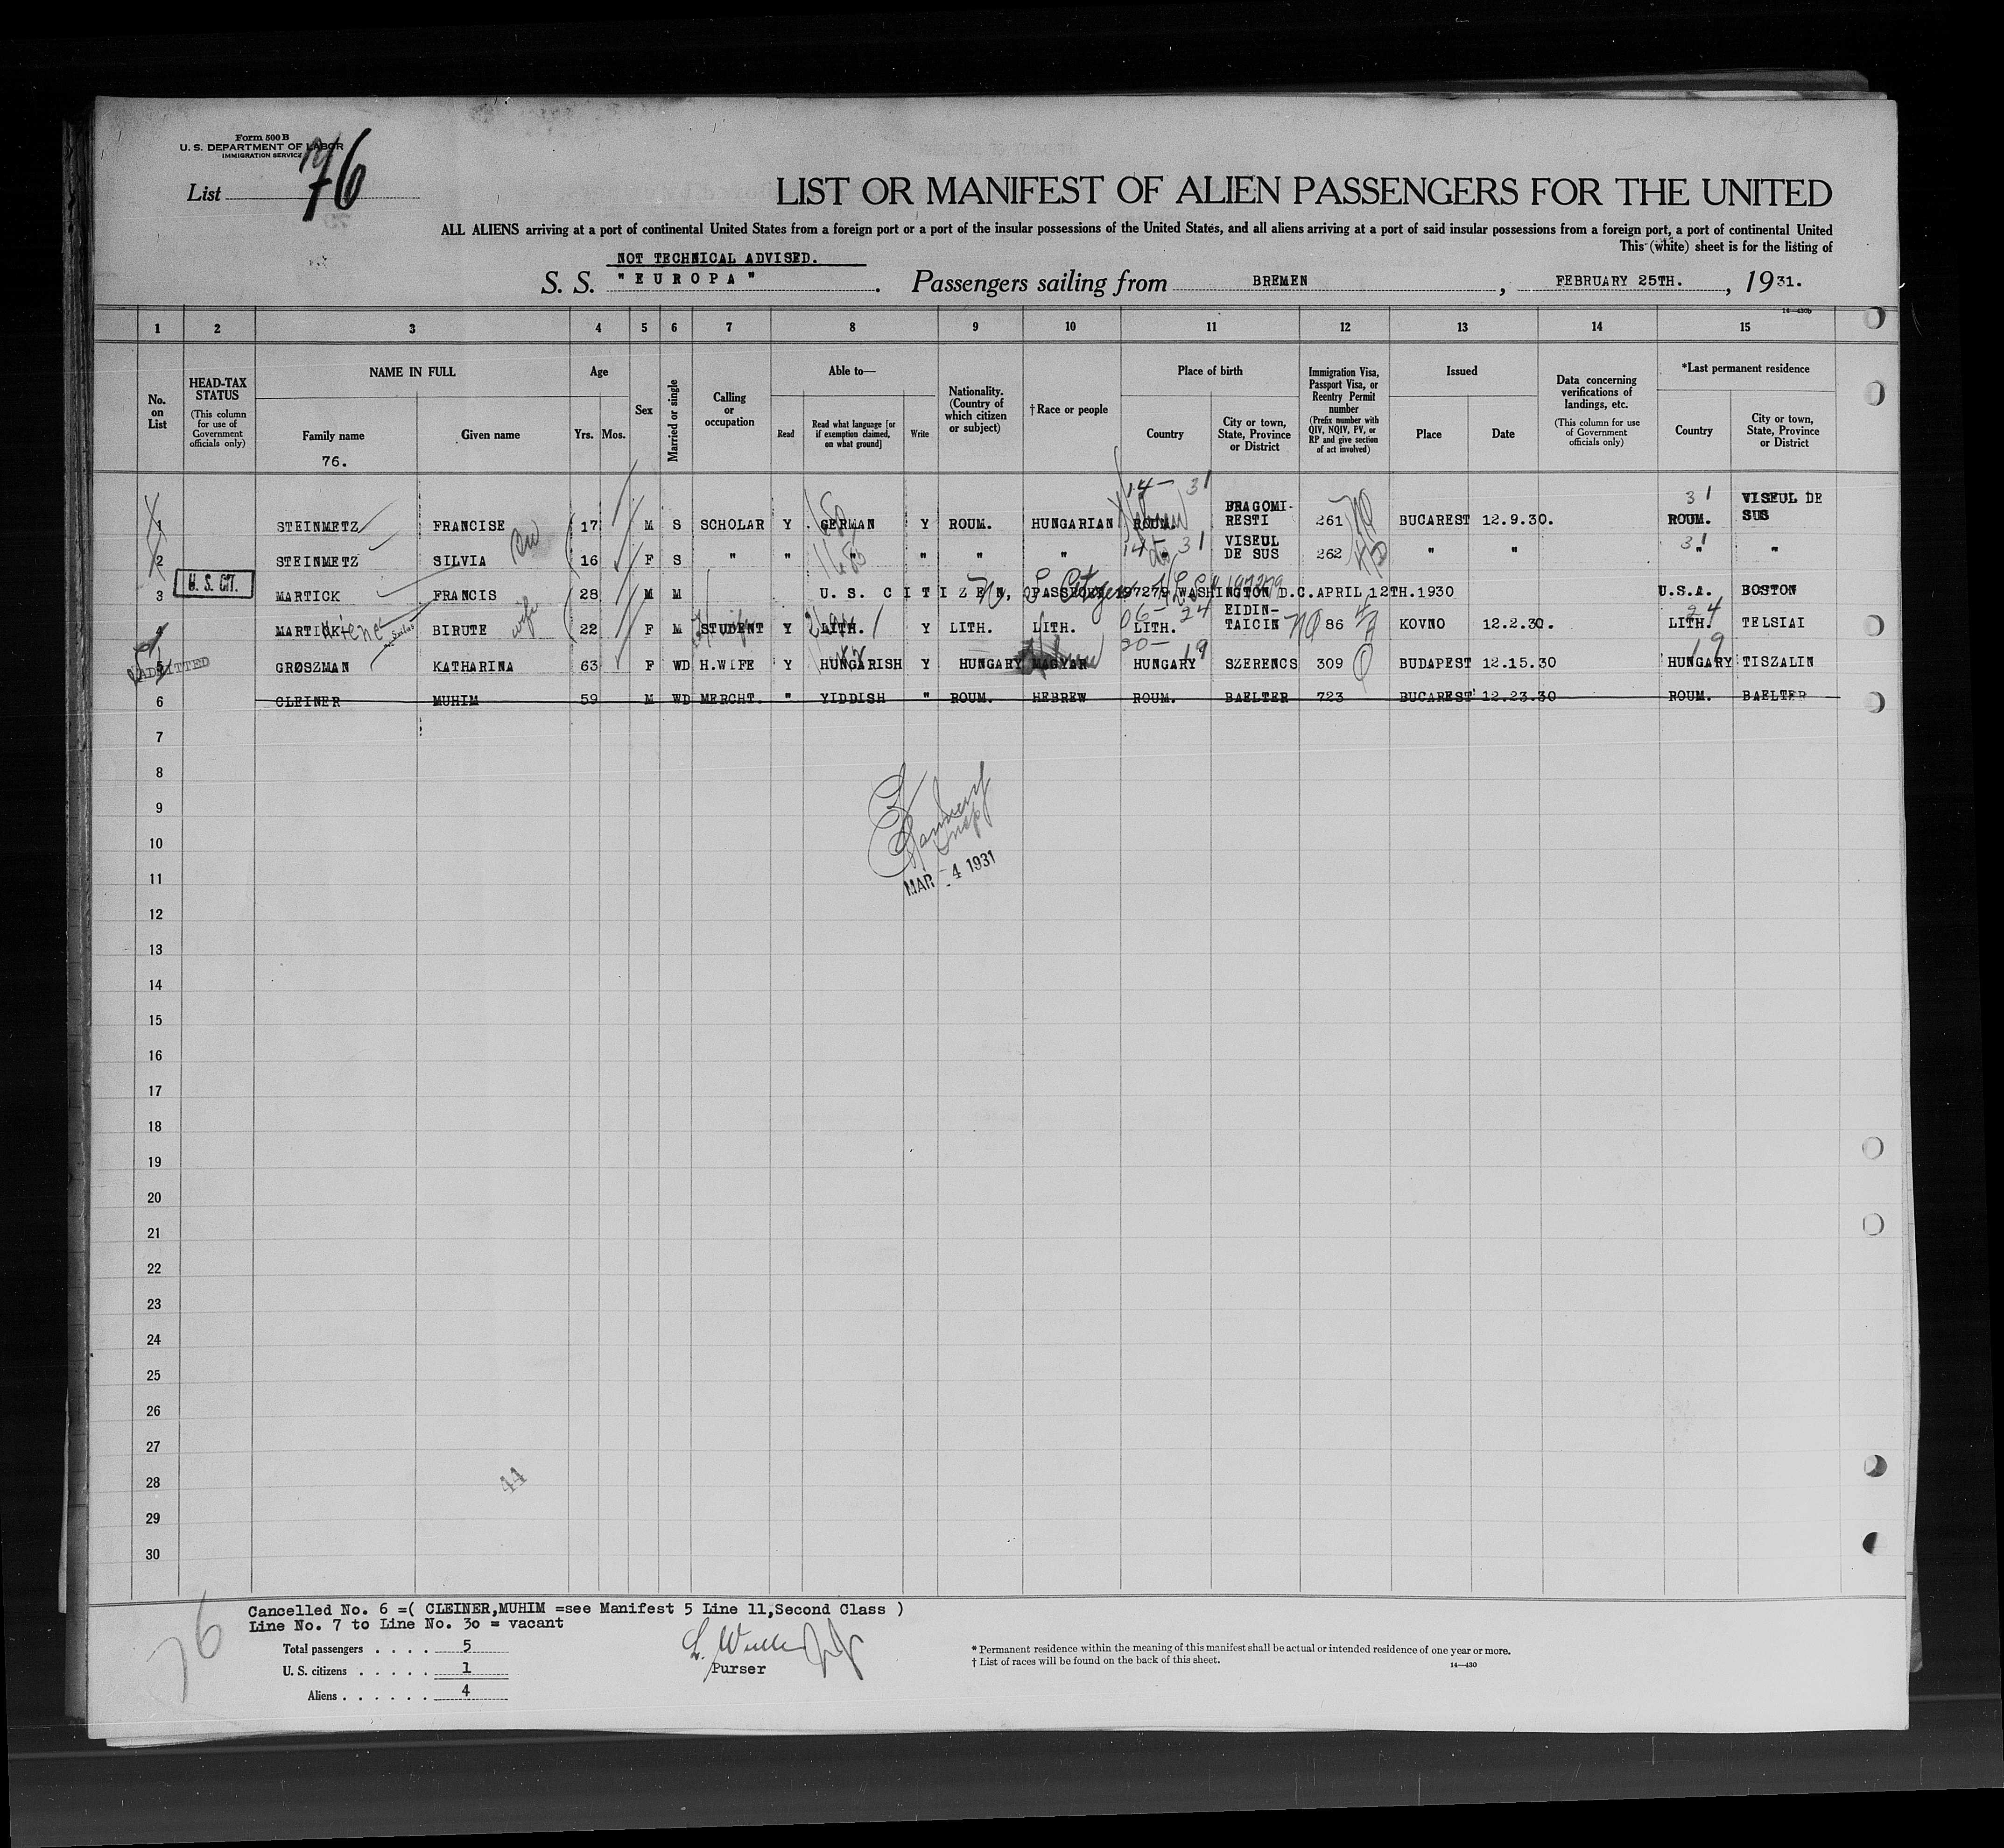 Form 500 B
U. S. DEPARTMENT OF LABOR
IMMIGRATION SERVICE
List 76
LIST OR MANIFEST OF ALIEN PASSENGERS FOR THE UNITED
ALL ALIENS arriving at a port of continental United States from a foreign port or a port of the insular possessions of the United States, and all aliens arriving at a port of said insular possessions from a foreign port, a port of continental United
This (white) sheet is for the listing of
NOT TECHNICAL ADVISED.
S. S. "EUROPA". Passengers sailing from BREMEN, FEBRUARY 25TH., 1931.
14—430b
1 2 3 4 5 6 7 8 9 10 11 12 13 14 15
No. on List
HEAD-TAX STATUS
(This column for use of Government officials only)
NAME IN FULL
Family name
76.
Given name
Age
Yrs. Mos.
Sex
Married or single
Calling or occupation
Able to—
Read
Read what language [or if exemption claimed, on what ground]
Write
Nationality. (Country of which citizen or subject)
† Race or people
Place of birth
Country
City or town, State, Province or District
Immigration Visa, Passport Visa, or Reentry Permit number
(Prefix number with QIV, NQIV, PV, or RP and give section of act involved)
Issued
Place
Date
Data concerning verifications of landings, etc.
(This column for use of Government officials only)
*Last permanent residence
Country
City or town, State, Province or District
14— 31
31
1 STEINMETZ FRANCISE 17 M S SCHOLAR Y GERMAN Y ROUM. HUNGARIAN ROUM. DRAGOMI-RESTI 261 BUCAREST 12.9.30. ROUM. VISEUL DE SUS
14— 31
31
2 STEINMETZ SILVIA 16 F S " " " " " " VISEUL DE SUS 262 " " " "
U. S. CIT.
3 MARTICK FRANCIS 28 M M U. S. CITIZEN, PASSPORT 197279 WASHINGTON D.C. APRIL 12TH.1930 U.S.A. BOSTON
U S Citizen
197279
06— 24
24
4 MARTICK BIRUTE wife 22 F M STUDENT Y LITH. Y LITH. LITH. LITH. EIDIN-TAICIN 86 KOVNO 12.2.30. LITH. TELSIAI
H.wife
20— 19
19
ADMITTED
5 GROSZMAN KATHARINA 63 F WD H.WIFE Y HUNGARISH Y HUNGARY MAGYAR HUNGARY SZERENCS 309 BUDAPEST 12.15.30 HUNGARY TISZALIN
6 CLEINER MUHIM 59 M WD MERCHT. " YIDDISH " ROUM. HEBREW ROUM. BAELTER 723 BUCAREST 12.23.30 ROUM. BAELTER
7
8
9
10
11
MAR - 4 1931
12
13
14
15
16
17
18
19
20
21
22
23
24
25
26
27
28
44
29
30
76
Cancelled No. 6 =( CLEINER,MUHIM =see Manifest 5 Line 11,Second Class )
Line No. 7 to Line No. 3o = vacant
Total passengers . . . . 5
U. S. citizens . . . . . 1
Aliens . . . . . . 4
Purser
* Permanent residence within the meaning of this manifest shall be actual or intended residence of one year or more.
† List of races will be found on the back of this sheet.
14—430